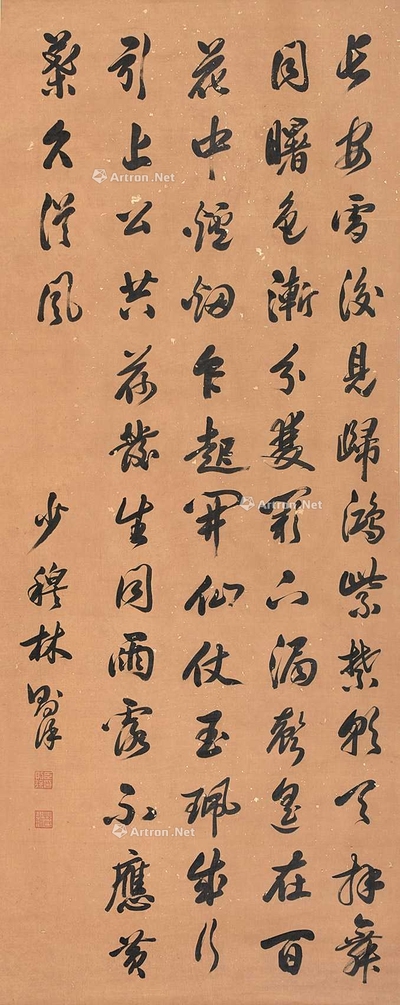 長安雪後見歸鴻紫禁朝天拜舞
同曙色漸分雙闕下漏聲遙在百
花中爐烟乍起開仙仗玉珮成行
引上公共荷發生同雨露不應黃
葉久從風
少穆林則徐
Artron.Net
Artron.Net
Artron.Net